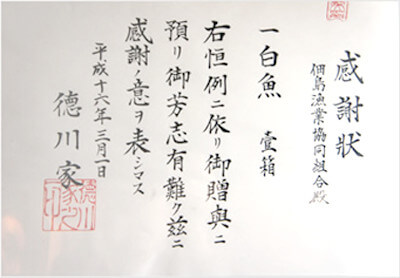 感謝状
佃島漁業協同組合殿
一白魚　壹箱
右恒例ニ依リ御贈與ニ
預リ御芳志有難ク茲ニ
感謝ノ意ヲ表シマス
平成十六年三月一日
徳川家